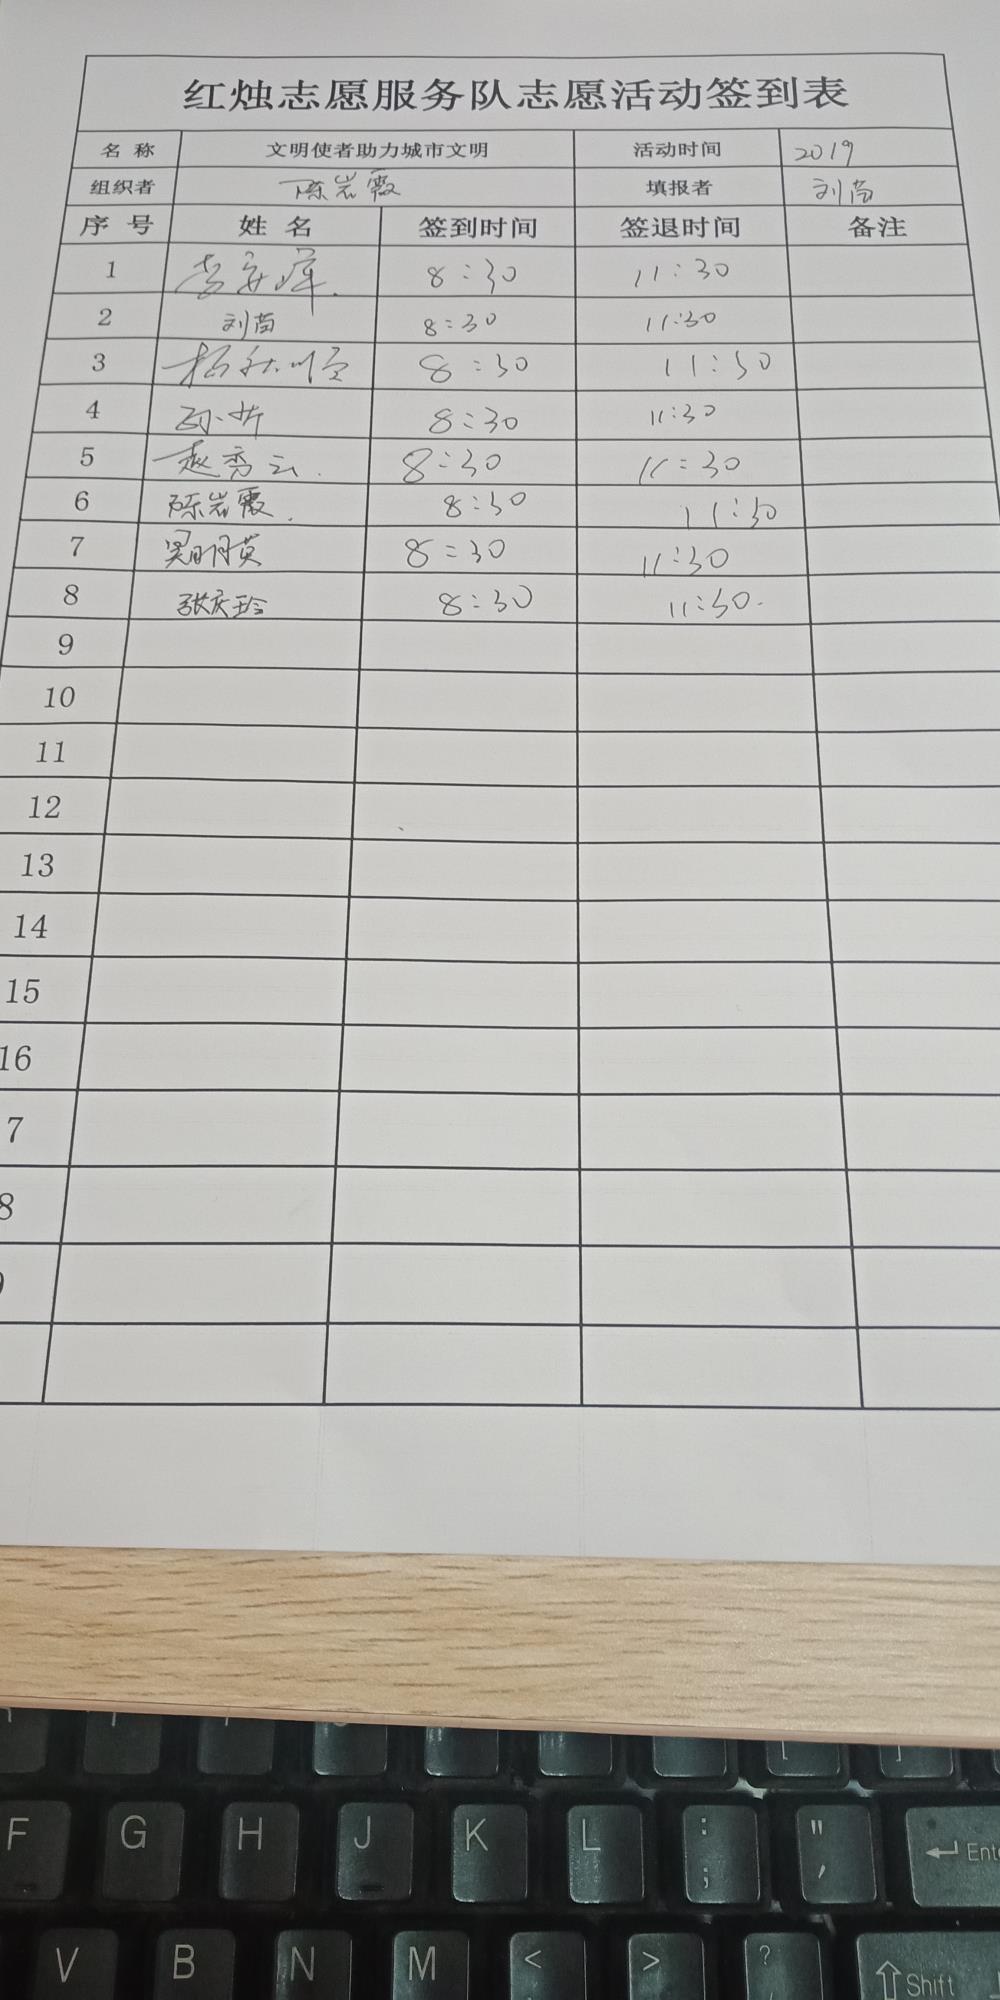 红烛志愿服务队志愿活动签到表
名 称 文明使者助力城市文明 活动时间 2019
组织者 陈岩霞 填报者 刘苗
序 号 姓 名 签到时间 签退时间 备注
1 8:30 11:30
2 刘苗 8:30 11:30
3 8:30 11:30
4 8:30 11:30
5 赵秀云. 8:30 11:30
6 陈岩霞. 8:30 11:30
7 吴明英 8:30 11:30
8 张庆玲 8:30 11:30.
9
10
11
12
13
14
15
16
7
8
9
F G H J K L : ; " ' Ente
V B N M < > ? Shift